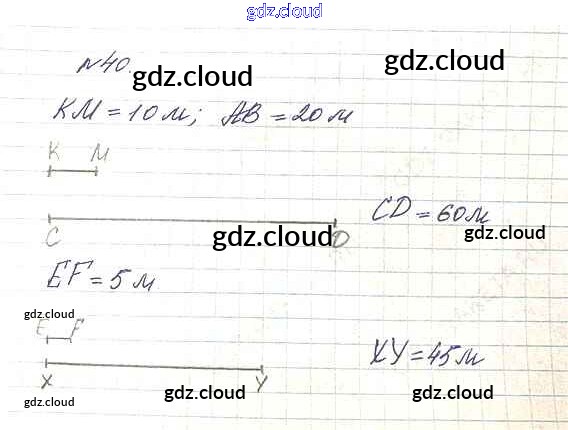 gdz.cloud
№40.
gdz.cloud gdz.cloud
КМ = 10 м; АВ = 20 м
К М
CD = 60 м
gdz.cloud
C gdz.cloud D
EF = 5 м
gdz.cloud
E F
XY = 45 м
X Y
gdz.cloud gdz.cloud gdz.cloud